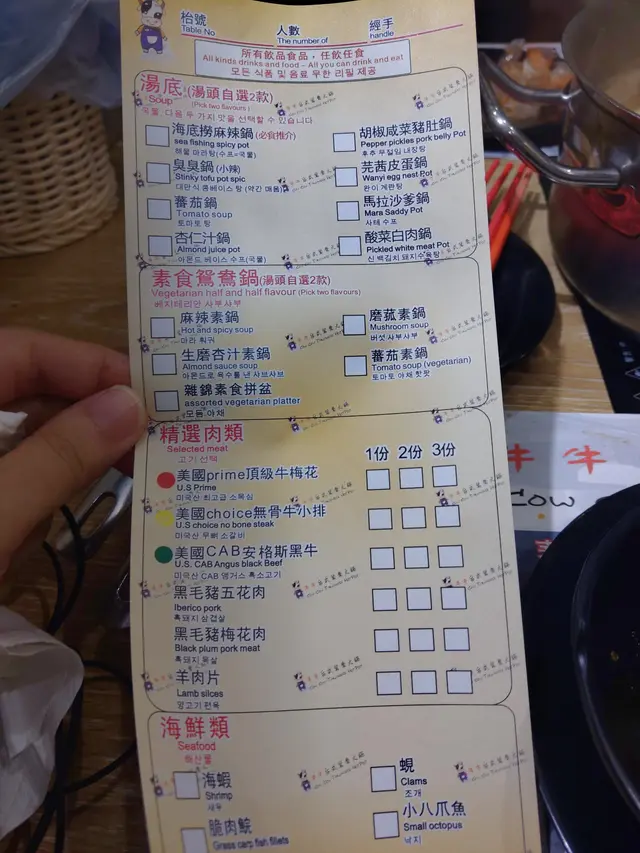 枱號 人數 經手
Table No The number of handle
所有飲品食品，任飲任食
All kinds drinks and food – All you can drink and eat
모든 식품 및 음료 무한 리필 제공
湯底 (湯頭自選2款)
Soup (Pick two flavours)
국물, 다음 두 가지 맛을 선택할 수 있습니다
海底撈麻辣鍋 (必食推介)
sea fishing spicy pot
해물 마라탕(수프=국물)
胡椒咸菜豬肚鍋
Pepper pickles pork belly Pot
후추 무절임 내장탕
臭臭鍋 (小辣)
Stinky tofu pot spic
대만식 콩베이스 탕 (약간 매움)
芫茜皮蛋鍋
Wanyi egg nest Pot
완이 계란탕
蕃茄鍋
Tomato soup
토마토 탕
馬拉沙爹鍋
Mara Saddy Pot
사테 수프
杏仁汁鍋
Almond juice pot
아몬드 베이스 수프(국물)
酸菜白肉鍋
Pickled white meat Pot
신 백김치 돼지수육탕
素食鴛鴦鍋 (湯頭自選2款)
Vegetarian half and half flavour (Pick two flavours)
베지테리안 샤부샤부
麻辣素鍋
Hot and spicy soup
마라 훠궈
磨菰素鍋
Mushroom soup
버섯 샤부샤부
生磨杏汁素鍋
Almond sauce soup
아몬드로 육수를 낸 샤브샤브
蕃茄素鍋
Tomato soup (vegetarian)
토마토 야채 핫팟
雜錦素食拼盆
assorted vegetarian platter
모듬 야채
精選肉類
Selected meat
고기 선택
1份 2份 3份
美國prime頂級牛梅花
U.S Prime
미국산 최고급 소목심
美國choice無骨牛小排
U.S choice no bone steak
미국산 무뼈 소갈비
美國CAB安格斯黑牛
U.S. CAB Angus black Beef
미국산 CAB 앵거스 흑소고기
黑毛豬五花肉
Iberico pork
흑돼지 삼겹살
黑毛豬梅花肉
Black plum pork meat
흑돼지 목살
羊肉片
Lamb slices
양고기 편육
海鮮類
Seafood
해산물
海蝦
Shrimp
새우
蜆
Clams
조개
脆肉鯇
Grass carp fish fillets
小八爪魚
Small octopus
낙지
牛 牛
Cow